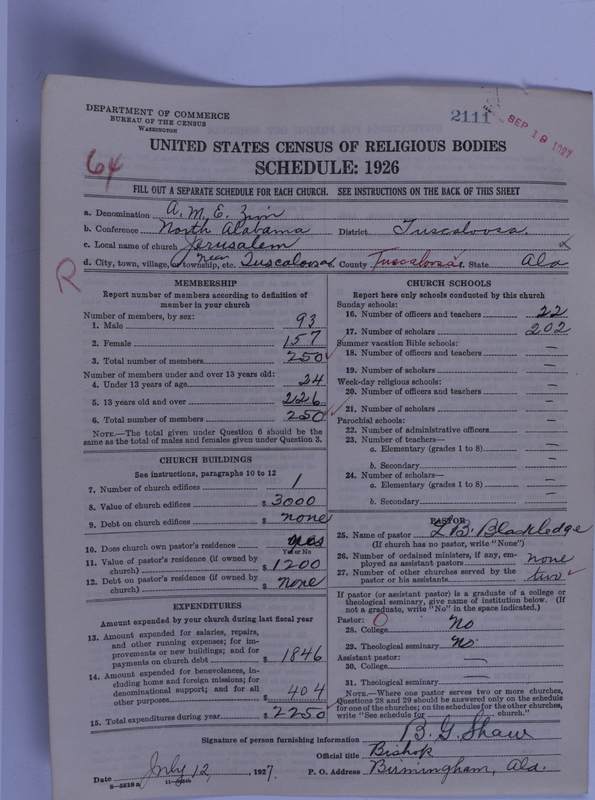 DEPARTMENT OF COMMERCE
BUREAU OF THE CENSUS
WASHINGTON
2111
SEP 19 1927
64
UNITED STATES CENSUS OF RELIGIOUS BODIES
SCHEDULE: 1926
FILL OUT A SEPARATE SCHEDULE FOR EACH CHURCH. SEE INSTRUCTIONS ON THE BACK OF THIS SHEET
a. Denomination A. M. E. Zion
b. Conference North Alabama District Tuscaloosa
c. Local name of church Jerusalem
R
d. City, town, village, or township, etc. near Tuscaloosa County Tuscaloosa State Ala
MEMBERSHIP
Report number of members according to definition of
member in your church
Number of members, by sex:
1. Male 93
2. Female 157
3. Total number of members 250
Number of members under and over 13 years old:
4. Under 13 years of age 24
5. 13 years old and over 226
6. Total number of members 250
NOTE.—The total given under Question 6 should be the
same as the total of males and females given under Question 3.
CHURCH BUILDINGS
See instructions, paragraphs 10 to 12
7. Number of church edifices 1
8. Value of church edifices $ 3000
9. Debt on church edifices $ none
10. Does church own pastor's residence yes
Yes or No
11. Value of pastor's residence (if owned by
church) $ 1200
12. Debt on pastor's residence (if owned by
church) $ none
EXPENDITURES
Amount expended by your church during last fiscal year
13. Amount expended for salaries, repairs,
and other running expenses; for im-
provements or new buildings; and for
payments on church debt $ 1846
14. Amount expended for benevolences, in-
cluding home and foreign missions; for
denominational support; and for all
other purposes $ 404
15. Total expenditures during year $ 2250
CHURCH SCHOOLS
Report here only schools conducted by this church
Sunday schools:
16. Number of officers and teachers 22
17. Number of scholars 202
Summer vacation Bible schools:
18. Number of officers and teachers —
19. Number of scholars —
Week-day religious schools:
20. Number of officers and teachers —
21. Number of scholars —
Parochial schools:
22. Number of administrative officers —
23. Number of teachers—
a. Elementary (grades 1 to 8) —
b. Secondary —
24. Number of scholars—
a. Elementary (grades 1 to 8) —
b. Secondary —
PASTOR
25. Name of pastor L. B. Blackledge
(If church has no pastor, write "None")
26. Number of ordained ministers, if any, em-
ployed as assistant pastors none
27. Number of other churches served by the
pastor or his assistants two
If pastor (or assistant pastor) is a graduate of a college or
theological seminary, give name of institution below. (If
not a graduate, write "No" in the space indicated.)
Pastor:
28. College No
29. Theological seminary No
Assistant pastor:
30. College —
31. Theological seminary —
NOTE.—Where one pastor serves two or more churches,
Questions 28 and 29 should be answered only on the schedule
for one of the churches; on the schedules for the other churches,
write "See schedule for church."
Signature of person furnishing information B. G. Shaw
Official title Bishop
Date July 12, 1927. P. O. Address Birmingham, Ala.